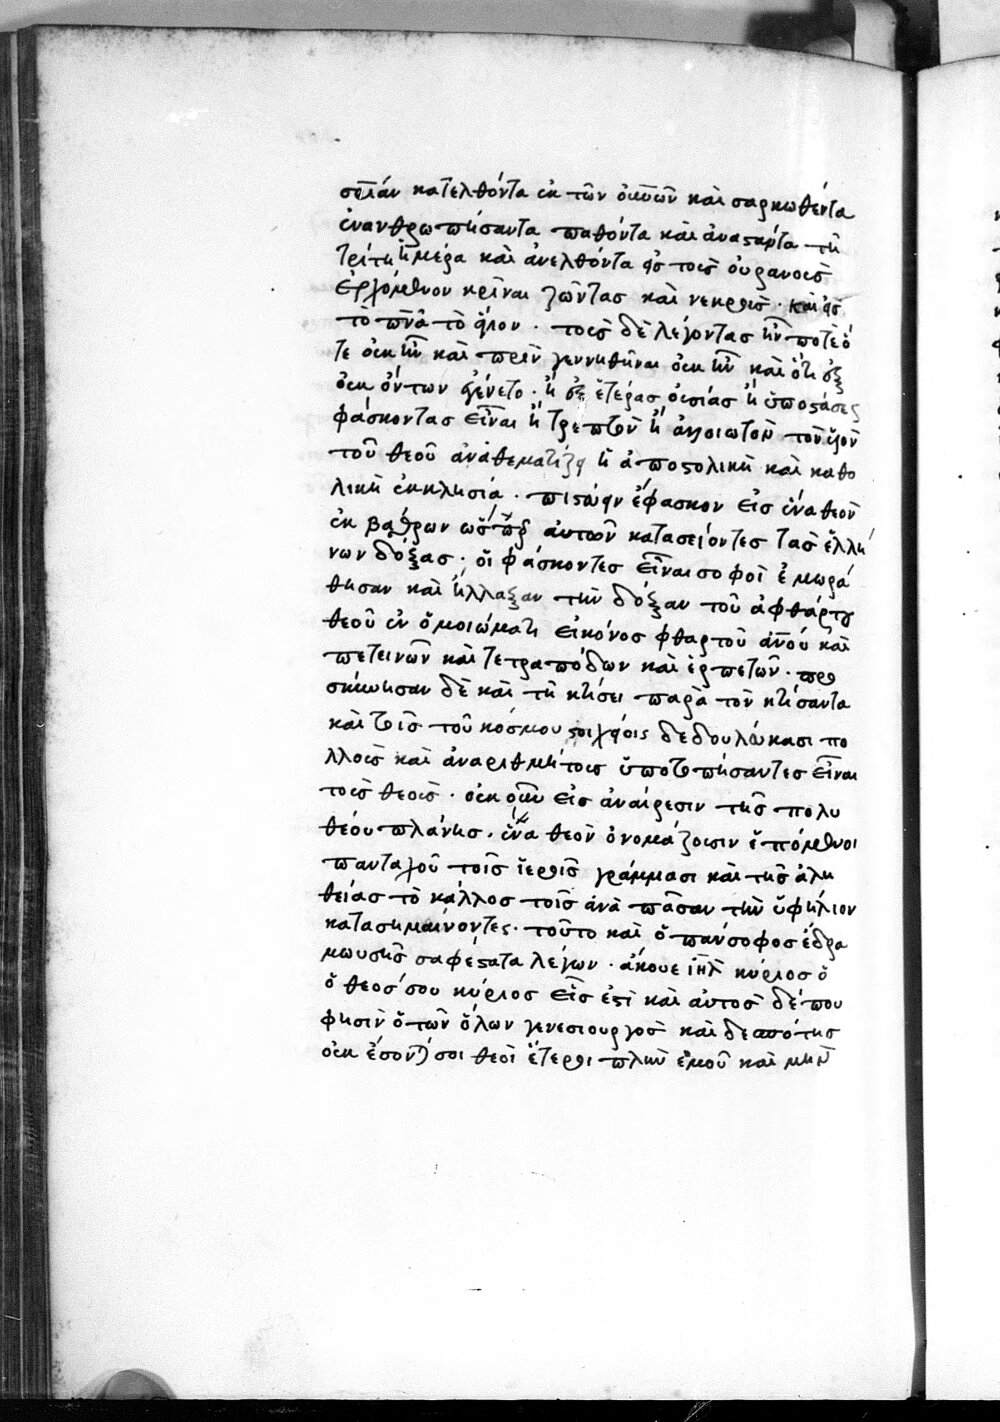 σριαν κατελθόντα ἐκ τῶν οὐνῶν καὶ σαρκωθέντα
ἐνανθρωπήσαντα παθόντα καὶ ἀναστάντα τῆ
τρίτη ἡμέρα καὶ ἀνελθόντα εἰς τοις οὐρανοις
ἐρχόμενον κρῖναι ζῶντας καὶ νεκροις · καὶ εἰς
το πνᾶ τὸ ἅγιον · τοις δὲ λέγοντας ἦν ποτὲ ὅ
τε οὐκ ἦν καὶ πρὶν γεννηθῆναι οὐκ ἦν καὶ ὅτι ἐξ
οὐκ ὄντων ἐγένετο · ἢ ἐξ ἑτέρας οὐσίας ἢ ὑποστάσεως
φάσκοντας εἶναι ἢ τρεπτὸν ἢ ἀλλοιωτὸν τὸν υἱὸν
τοῦ θεοῦ ἀναθεματίζει ἡ ἀποστολικὴ καὶ καθο
λικὴ ἐκκλησία · πιστεύειν ἔφασκον εἰς ἕνα θεὸν
ἐκ βάθρων ὥσπερ αὐτῶν κατασείοντες τὰς ἑλλή
νων δόξας · οἳ φάσκοντες εἶναι σοφοὶ ἐμωρά
θησαν καὶ ἤλλαξαν τὴν δόξαν τοῦ ἀφθάρτου
θεοῦ ἐν ὁμοιώματι εἰκόνος φθαρτοῦ ἀνου καὶ
πετεινῶν καὶ τετραπόδων καὶ ἑρπετῶν · προ
σκύνησαν δὲ καὶ τῆ κτίσει παρὰ τὸν κτίσαντα
καὶ τοῖς τοῦ κόσμου στοιχείοις δεδουλεύκασι πο
λλοις καὶ ἀναριθμήτοις ὑποτοπήσαντες εἶναι
τοις θεοις · οὐκ οῦν εἰς ἀναίρεσιν τῆς πολυ
θέου πλάνης · ἕνα θεὸν ὀνομάζουσιν ἑπόμενοι
πανταχοῦ τοῖς ἱεροῖς γράμμασι καὶ τῆς ἀλη
θείας τὸ κάλλος τοῖς ἀνὰ πᾶσαν τὴν ὑφήλιον
κατασημαίνοντες · τοῦτο καὶ ὁ πάνσοφος ἔδρα
μωυσῆς σαφέστατα λέγων · ἄκουε ιηλ κύριος ὁ
ὁ θεός σου κύριος εἷς ἐστὶ καὶ αὐτὸς δέ που
φησὶν ὁ τῶν ὅλων γενεσιουργὸς καὶ δεσπότης
οὐκ ἔσονταί σοι θεοὶ ἕτεροι πλὴν ἐμοῦ καὶ μὴν